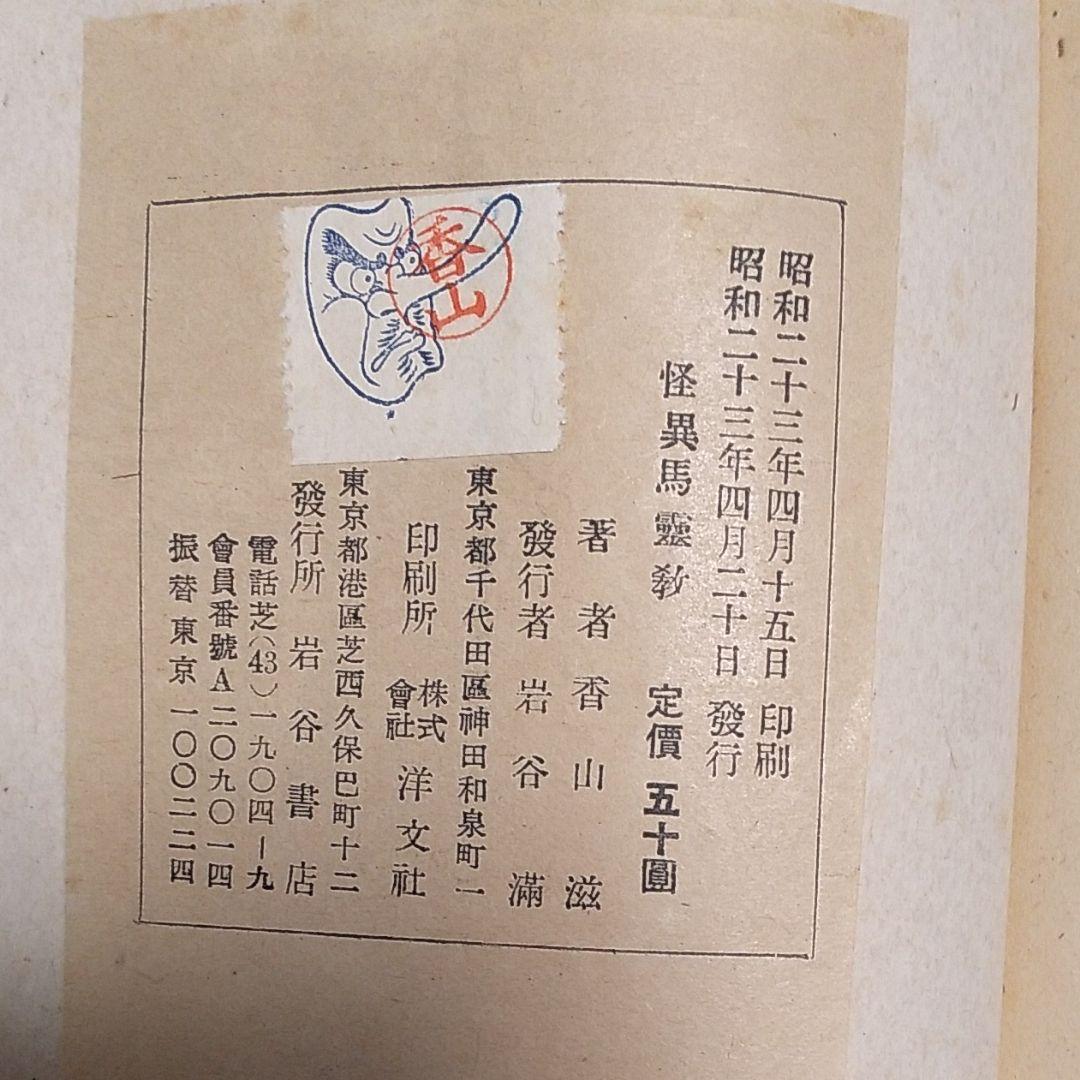 昭和二十三年四月十五日 印刷
昭和二十三年四月二十日 發行
怪異馬靈教 定價 五十圓
著者 香山滋
發行者 岩谷滿
東京都千代田區神田和泉町一
印刷所 株式會社 洋文社
東京都港區芝西久保巴町十二
發行所 岩谷書店
電話芝(43)一九〇四—九
會員番號A二〇九〇一四
振替東京一〇〇二二四
香山